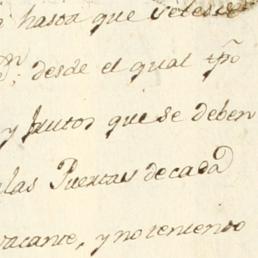 hasta que se le
desde el qual tpō
y frutos que se deben
las Puertas de cada
vacante, y no teniendo